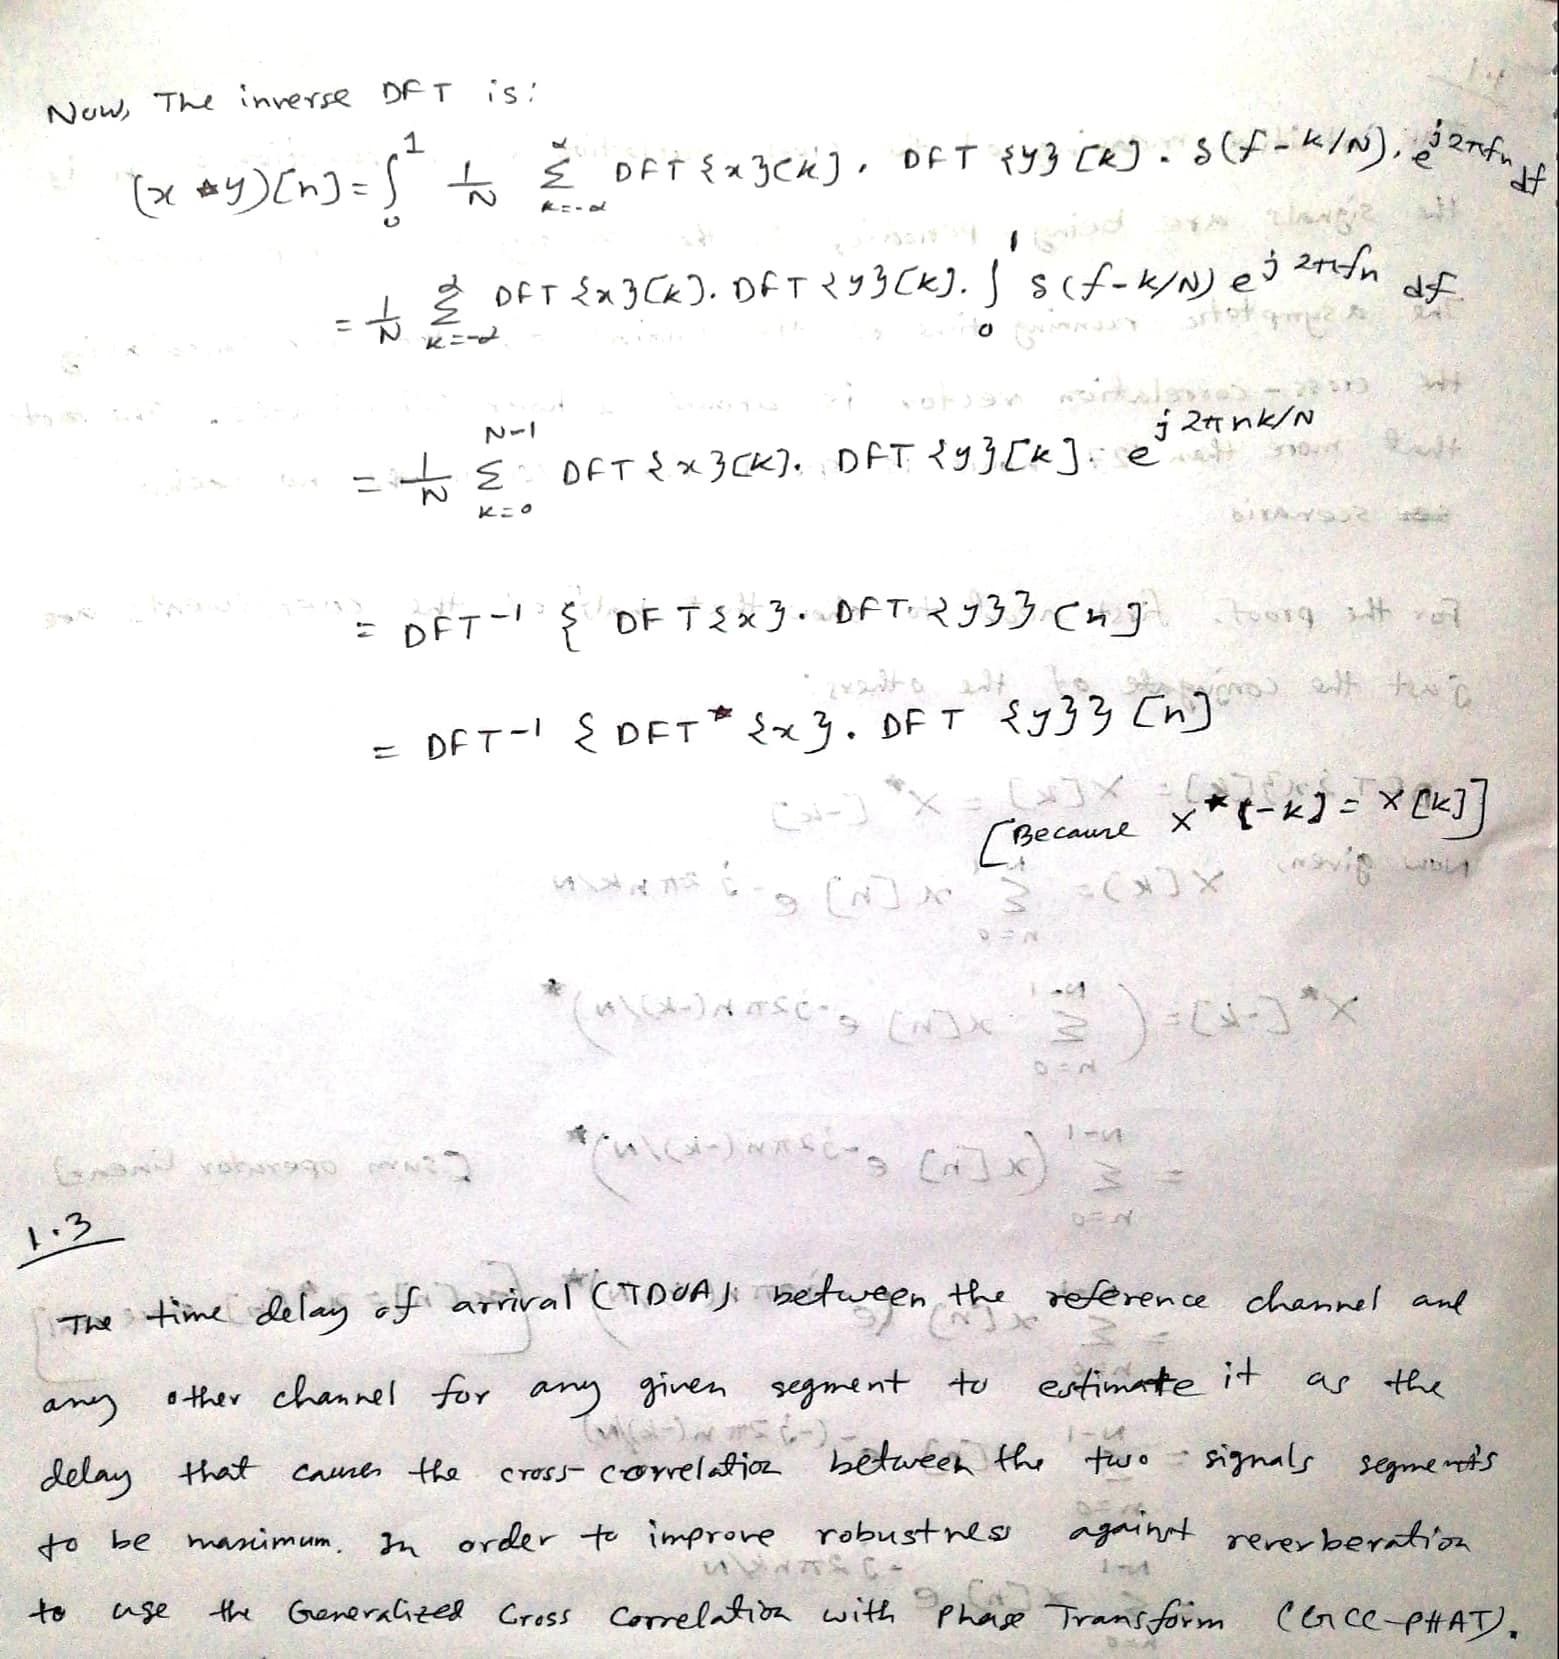 Now, The inverse DFT is:
(x ★ y)[n] = ∫₀¹ 1/N Σ_{k=-α}^{α} DFT{x}[k]. DFT {y}[k]. δ(f-k/N). e^{j2πfn} df
= 1/N Σ_{k=-α}^{α} DFT{x}[k]. DFT{y}[k]. ∫₀¹ δ(f-k/N) e^{j2πfn} df
= 1/N Σ_{k=0}^{N-1} DFT{x}[k]. DFT{y}[k]. e^{j2πnk/N}
= DFT-1 { DFT{x}. DFT{y}} [n]
= DFT-1 {DFT* {x}. DFT {y}} [n]
[Because X*[-k] = X[k]]
1.3
The time delay of arrival (TDOA) between the reference channel and
any other channel for any given segment to estimate it as the
delay that causes the cross-correlation between the two signals segments
to be maximum. In order to improve robustness against reverberation
to use the Generalized Cross Correlation with Phase Transform (GCC-PHAT).